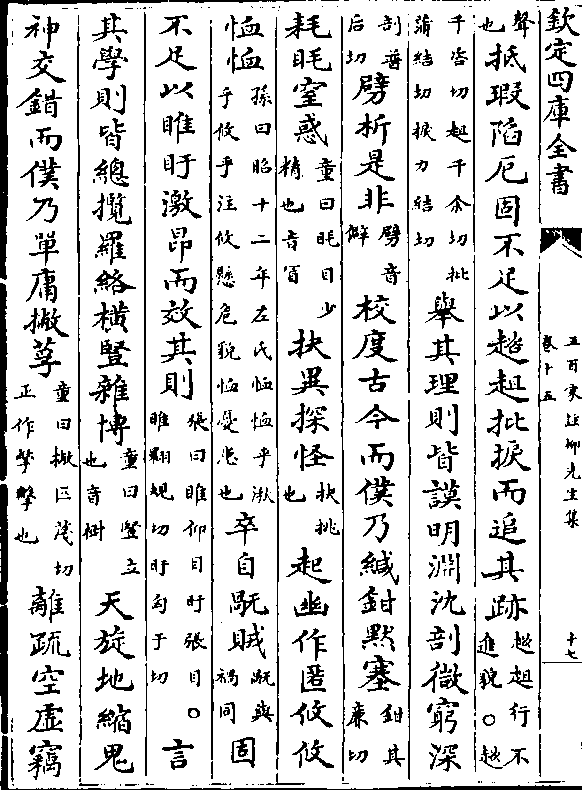 欽定四庫全書
五百家注柳先生集
卷十五
十七
聲也抵瑕陷厄固不足以趑趄批捩而追其跡趑趄行不進貌○趑
千咨切趄千余切批蒲結切捩力結切舉其理則皆謨明淵沈剖微窮深
剖普后切劈析是非劈音僻校度古今而僕乃緘鉗默塞鉗其廉切
耗眊窒惑童曰眊目少精也音冒抉異探怪抉挑也起幽作匿攸攸
恤恤孫曰昭十二年左氏恤恤乎湫乎攸乎注攸懸危貌恤憂患也卒自䄀賊䄀與禍同固
不足以睢盱激昂而效其則張曰睢仰目盱張目○睢翾規切盱匈于切言
其學則皆總攬羅絡橫豎雜博童曰豎立也音樹天旋地縮鬼
神交錯而僕乃單庸撇莩童曰撇匹蔑切正作擎擊也離疏空虛竊